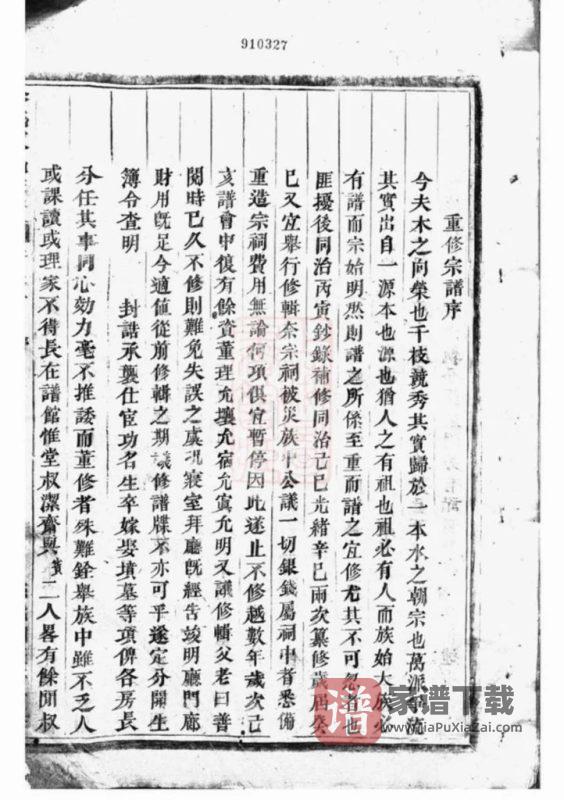 910327
重修宗譜序
今夫木之向榮也千枝競秀其實歸於一本水之朝宗也萬派
其實出自一源本也源也猶人之有祖也祖必有人而族始大族必
有譜而宗始明然則譜之所係至重而譜之宜修尤其不可忽者也
匪擾後同治丙寅鈔錄補修同治己巳光緒辛巳兩次纂修歲屆癸
巳又宜舉行修輯奈宗祠被災族中公議一切銀錢屬祠中者悉備
重造宗祠費用無論何項俱宜暫停因此遂止不修越數年歲次己
亥譜會中復有餘資董理允壤允宿允寅允明又議修輯父老曰善
閱時已久不修則難免失誤之虞況寢室拜廳既經告竣明廳門廊
財用既足今適值從前修輯之期議修譜牒不亦可乎遂定分開生
簿令查明 封誥承襲仕宦功名生卒嫁娶墳墓等項俾各房長
分任其事同心効力毫不推諉而董修者殊難銓舉族中雖不乏人
或課讀或理家不得長在譜館惟堂叔潔齋與 二人畧有餘閒叔
家谱下载
www.JiaPuXiaZai.com